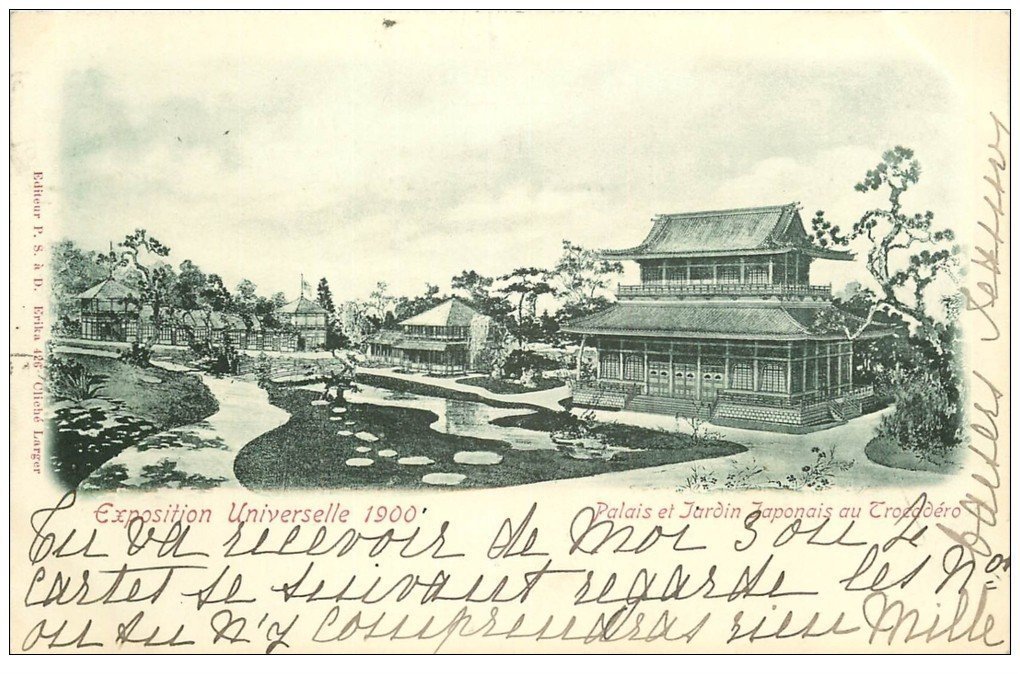 Exposition Universelle 1900
Palais et Jardin Japonais au Trocadéro
Editeur P. S. à D. Erika 426 Cliché Larger
Tu va recevoir de Moi 3 ou 4
cartet se suivant regarde les Nos
ou tu n'y comprendras rien Mille
baisers